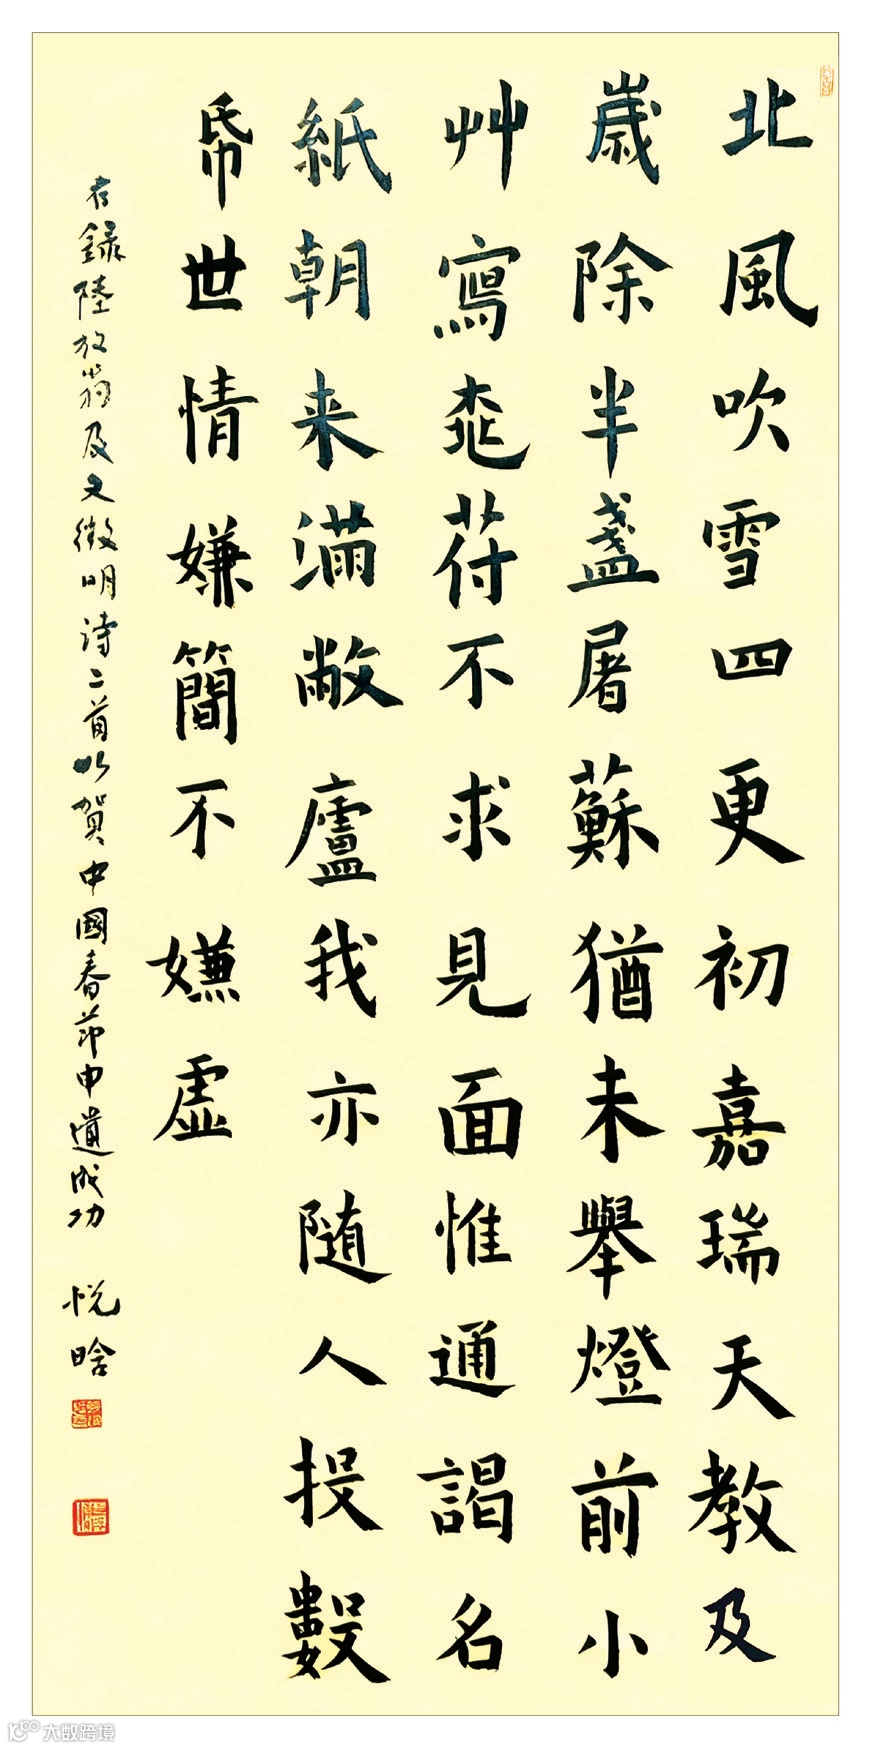 北風吹雪四更初嘉瑞天教及
歲除半盞屠蘇猶未舉燈前小
艸寫桃符不求見面惟通謁名
紙朝来滿敝廬我亦随人投數
帋世情嫌簡不嫌虛
右録陸放翁及文徵明诗二首以贺中國春节申遺成功
悦晗
大数跨境